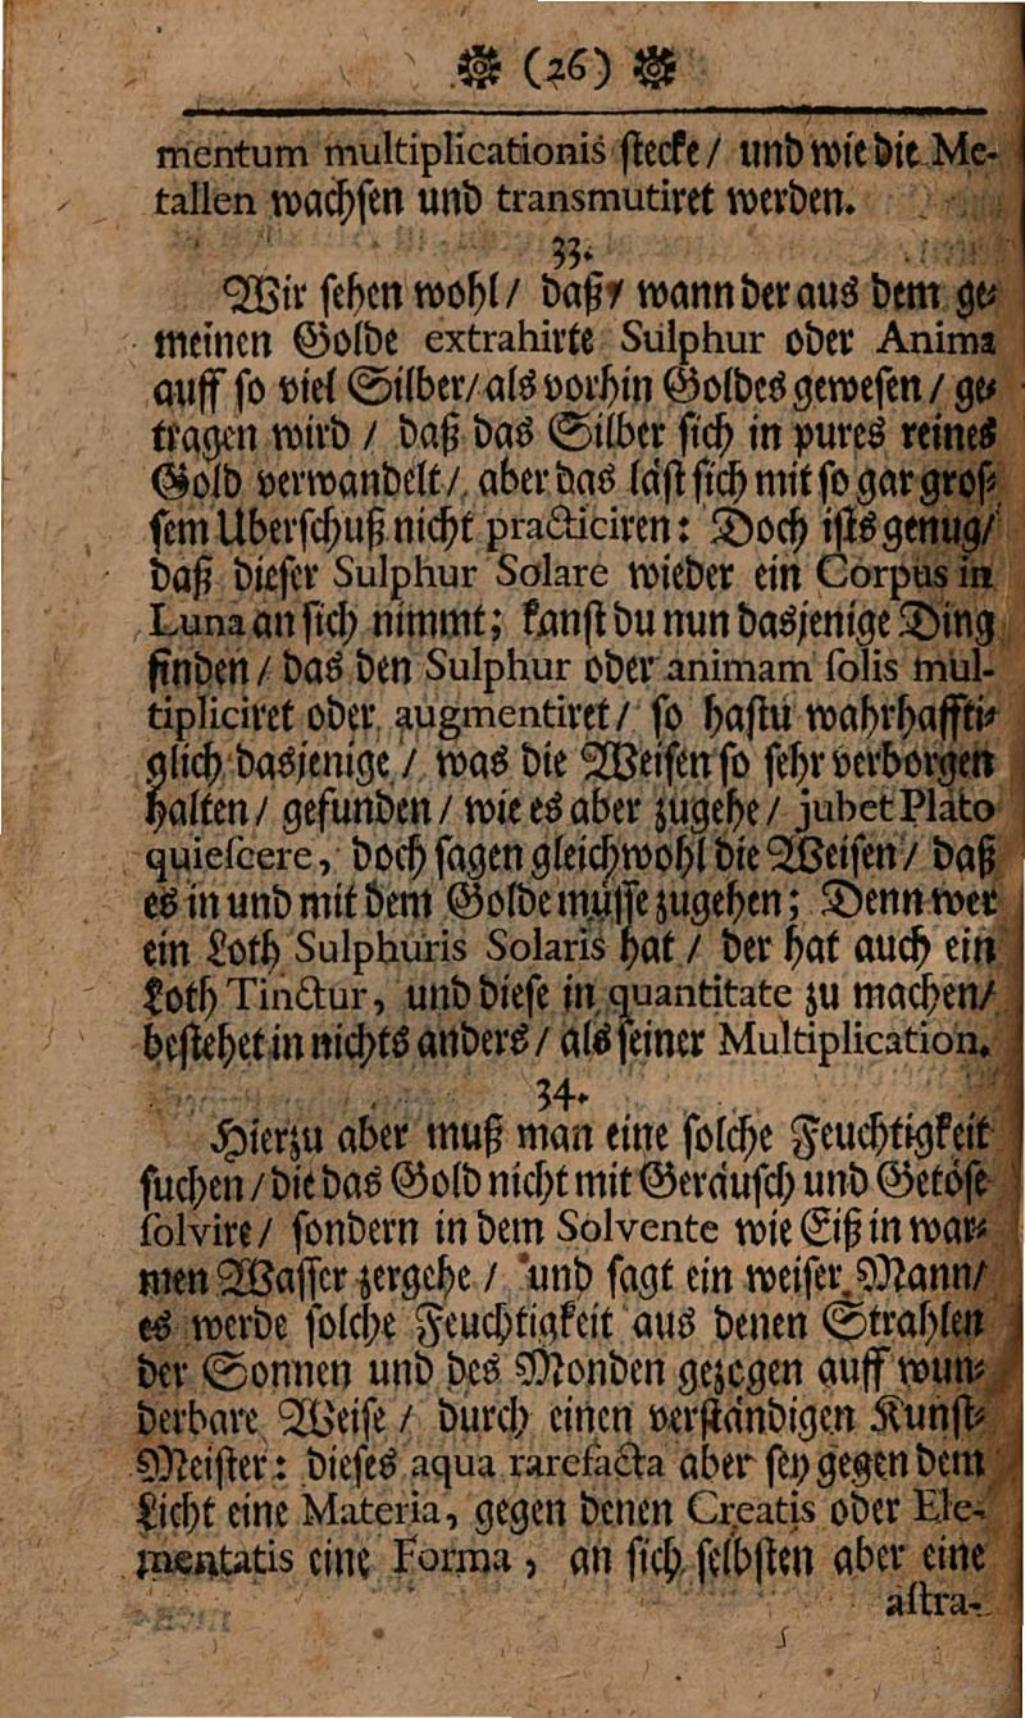 (26)
mentum multiplicationis stecke / und wie die Me-
tallen wachsen und transmutiret werden.
33.
Wir sehen wohl / daß / wann der aus dem ge-
meinen Golde extrahirte Sulphur oder Anima
auff so viel Silber / als vorhin Goldes gewesen / ge-
tragen wird / daß das Silber sich in pures reines
Gold verwandelt / aber das läst sich mit so gar gros-
sem Uberschuß nicht practiciren: Doch ists genug /
daß dieser Sulphur Solare wieder ein Corpus in
Luna an sich nimmt; kanst du nun dasjenige Ding
finden / das den Sulphur oder animam solis mul-
tipliciret oder augmentiret / so hastu wahrhaffti-
glich dasjenige / was die Weisen so sehr verborgen
halten / gefunden / wie es aber zugehe / jubet Plato
quiescere, doch sagen gleichwohl die Weisen / daß
es in und mit dem Golde müsse zugehen; Denn wer
ein Loth Sulphuris Solaris hat / der hat auch ein
Loth Tinctur, und diese in quantitate zu machen /
bestehet in nichts anders / als seiner Multiplication.
34.
Hierzu aber muß man eine solche Feuchtigkeit
suchen / die das Gold nicht mit Geräusch und Getöse
solvire / sondern in dem Solvente wie Eiß in war-
men Wasser zergehe / und sagt ein weiser Mann /
es werde solche Feuchtigkeit aus denen Strahlen
der Sonnen und des Monden gezogen auff wun-
derbare Weise / durch einen verständigen Kunst-
Meister: dieses aqua rarefacta aber sey gegen dem
Licht eine Materia, gegen denen Creatis oder Ele-
mentatis eine Forma, an sich selbsten aber eine
astra-